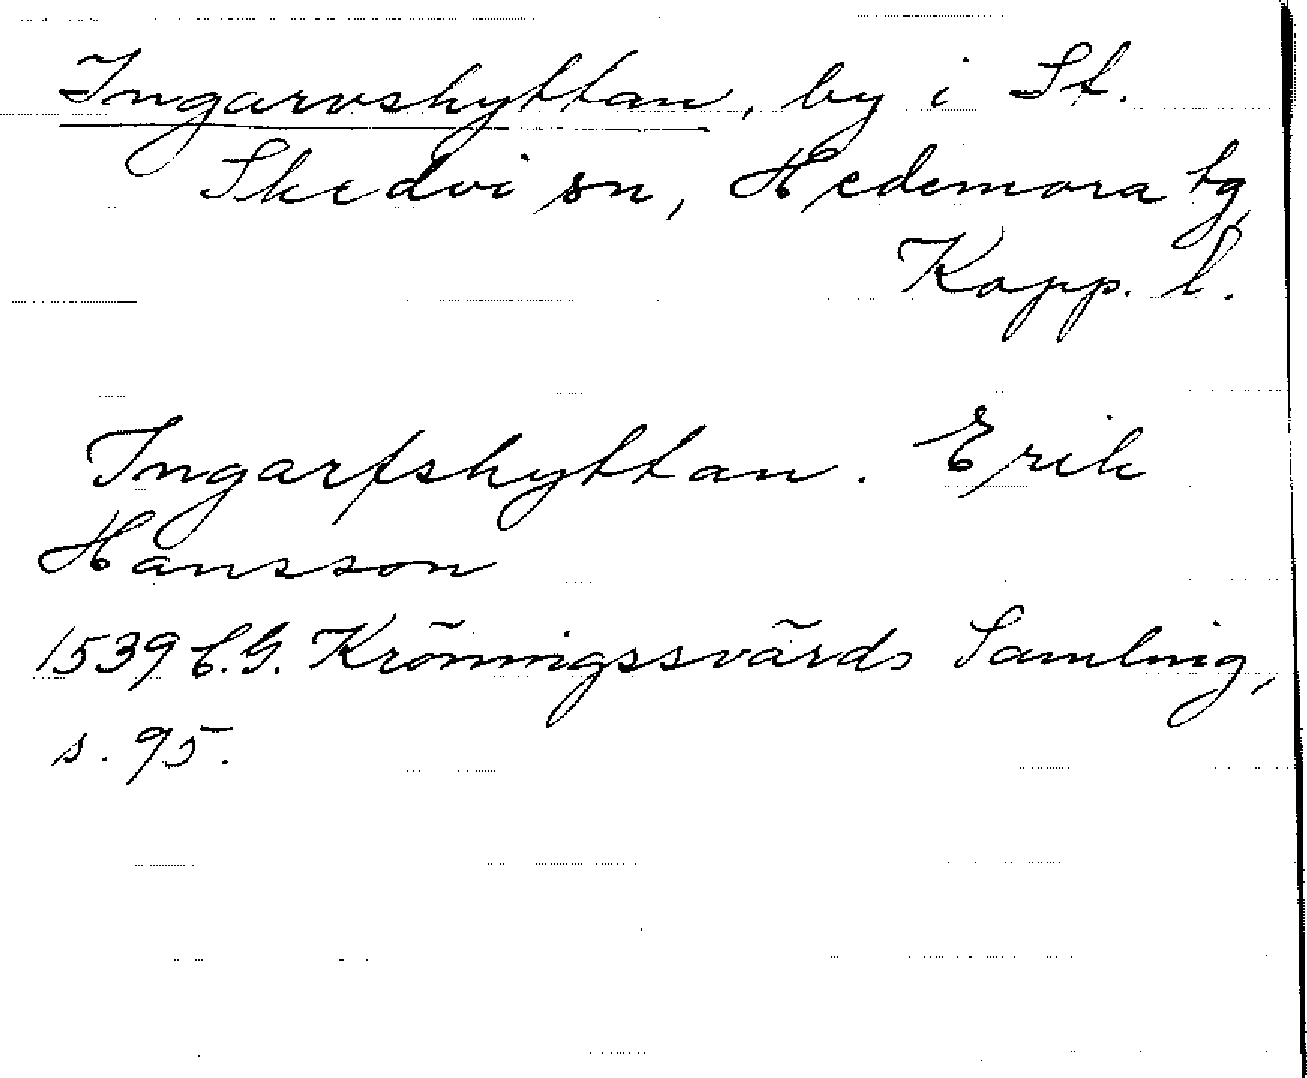 Ingarvshyttan, by i St.
Skedvi sn, Hedemora tg,
Kopp. l.
Ingarfshyttan. Erik
Hansson
1539 C.G. Kröningssvärds Samling,
s. 95.